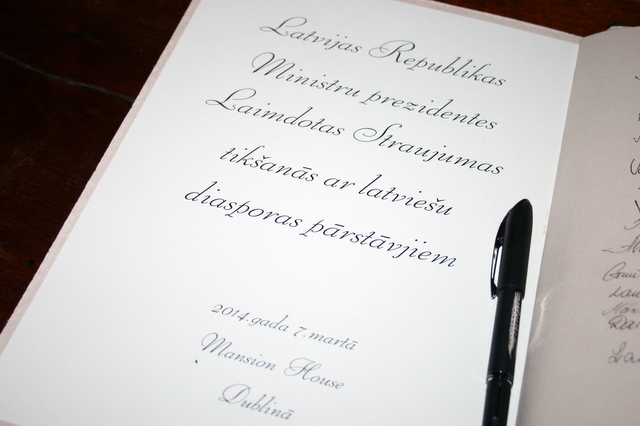 Latvijas Republikas
Ministru prezidentes
Laimdotas Straujumas
tikšanās ar latviešu
diasporas pārstāvjiem
2014.gada 7.martā
Mansion House
Dublinā